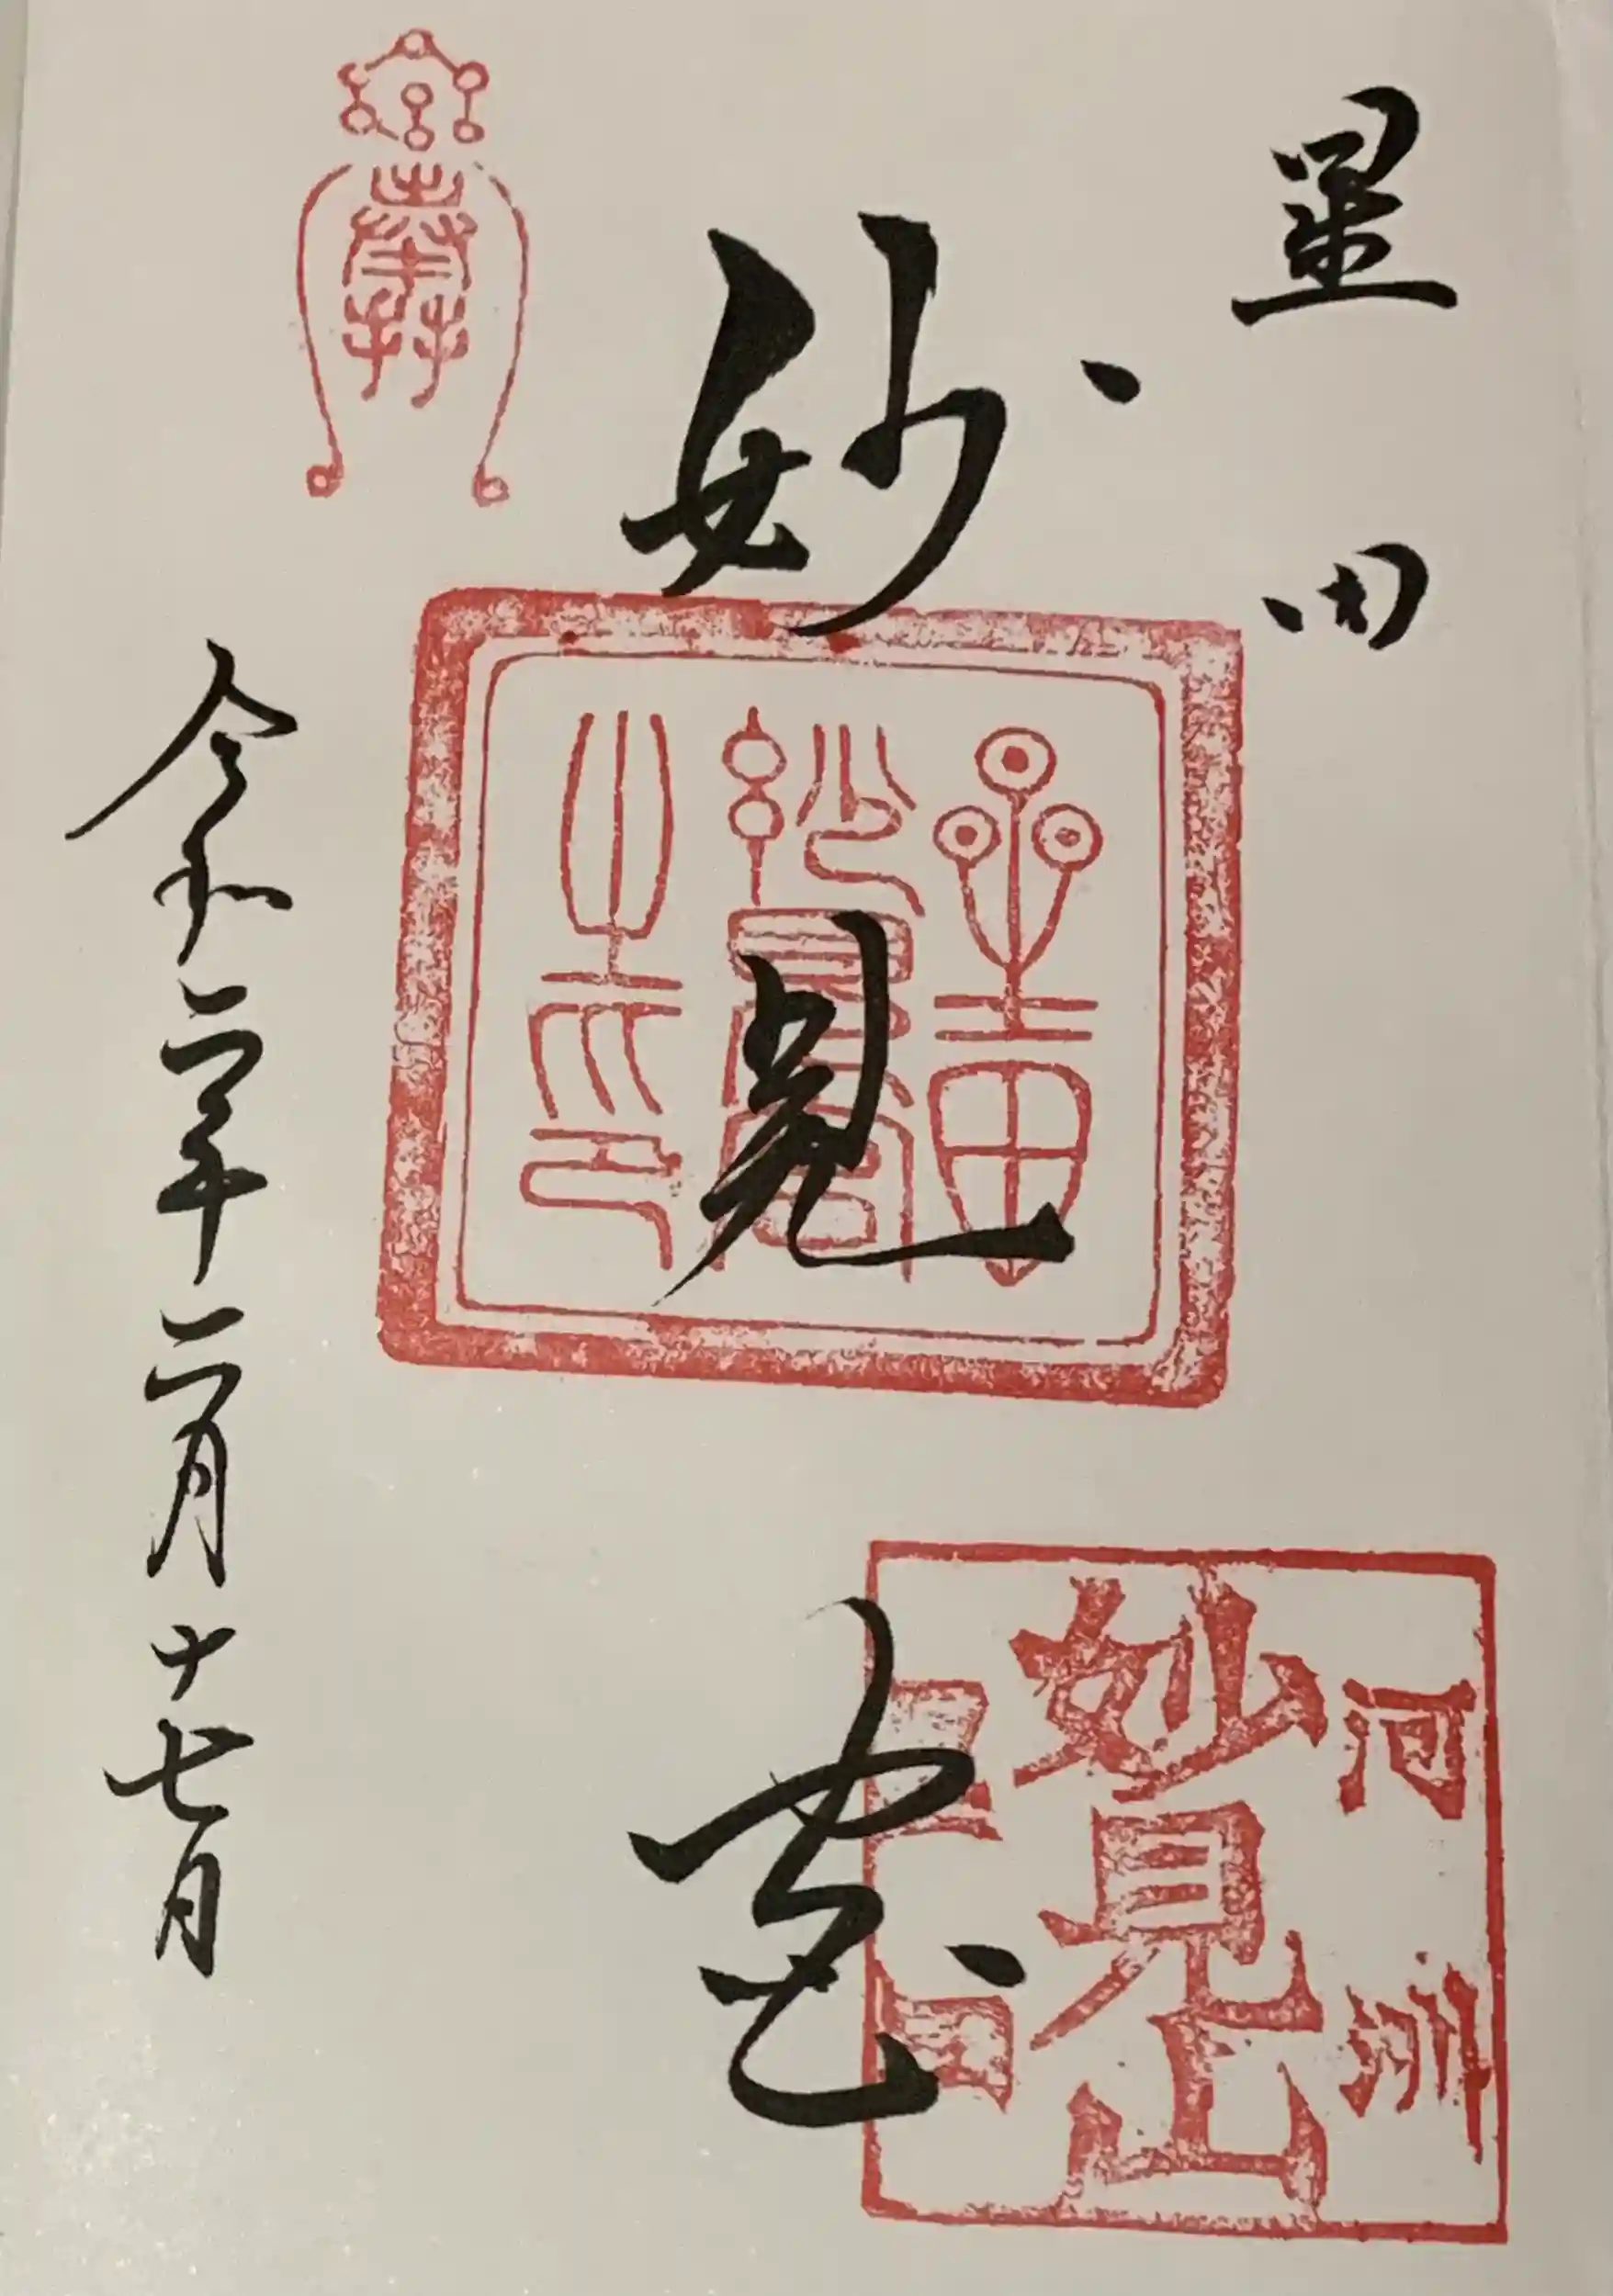 星田
妙見宮
令和二年二月十七日
星田
妙見宮
之印
河州
妙見山
星田